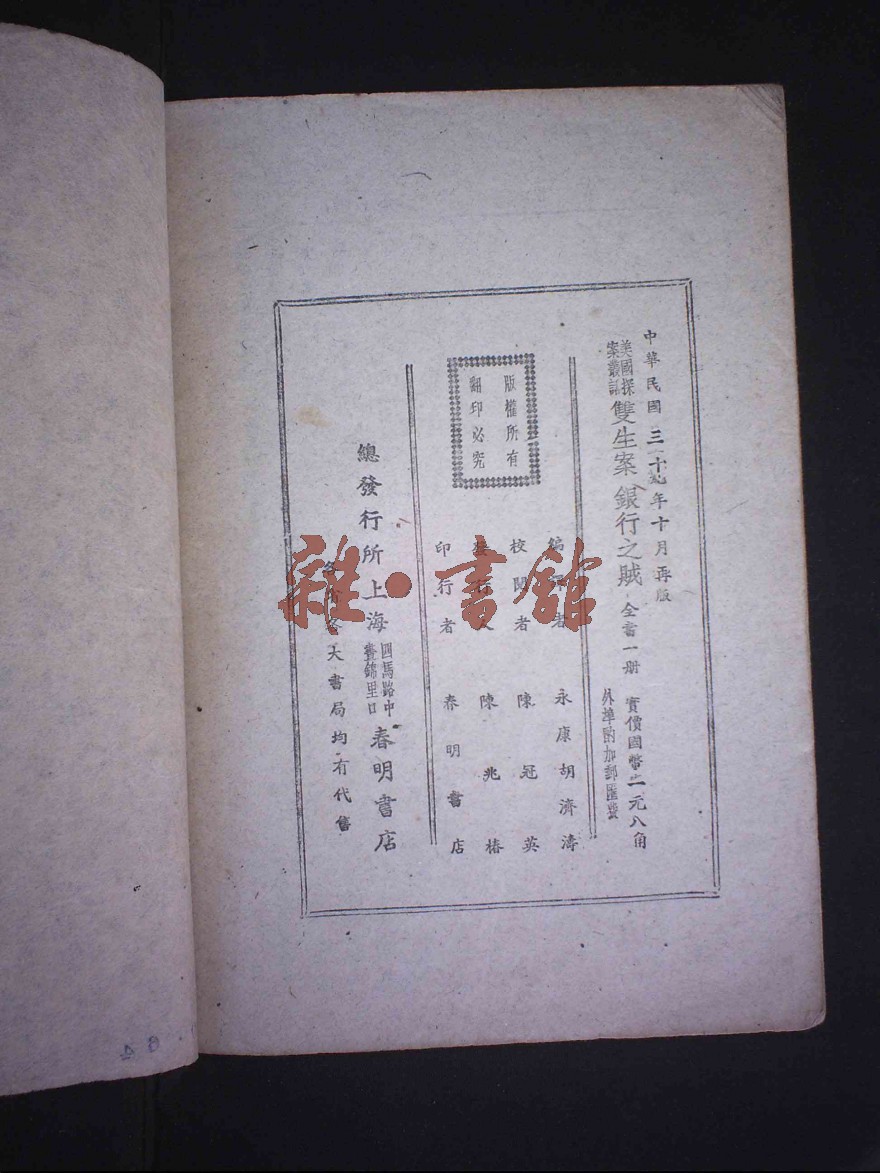 中華民國 十 年十月再版
美國探
案叢話
雙生案 銀行之賊 全書一册
實價國幣二元八角
外埠酌加郵匯費
版權所有
翻印必究
編譯者 永康胡濟濤
校閱者 陳冠英
發行人 陳兆椿
印行者 春明書店
總發行所上海
四馬路中
晝錦里口
春明書店
各省各大書局均有代售
雜·書館
64